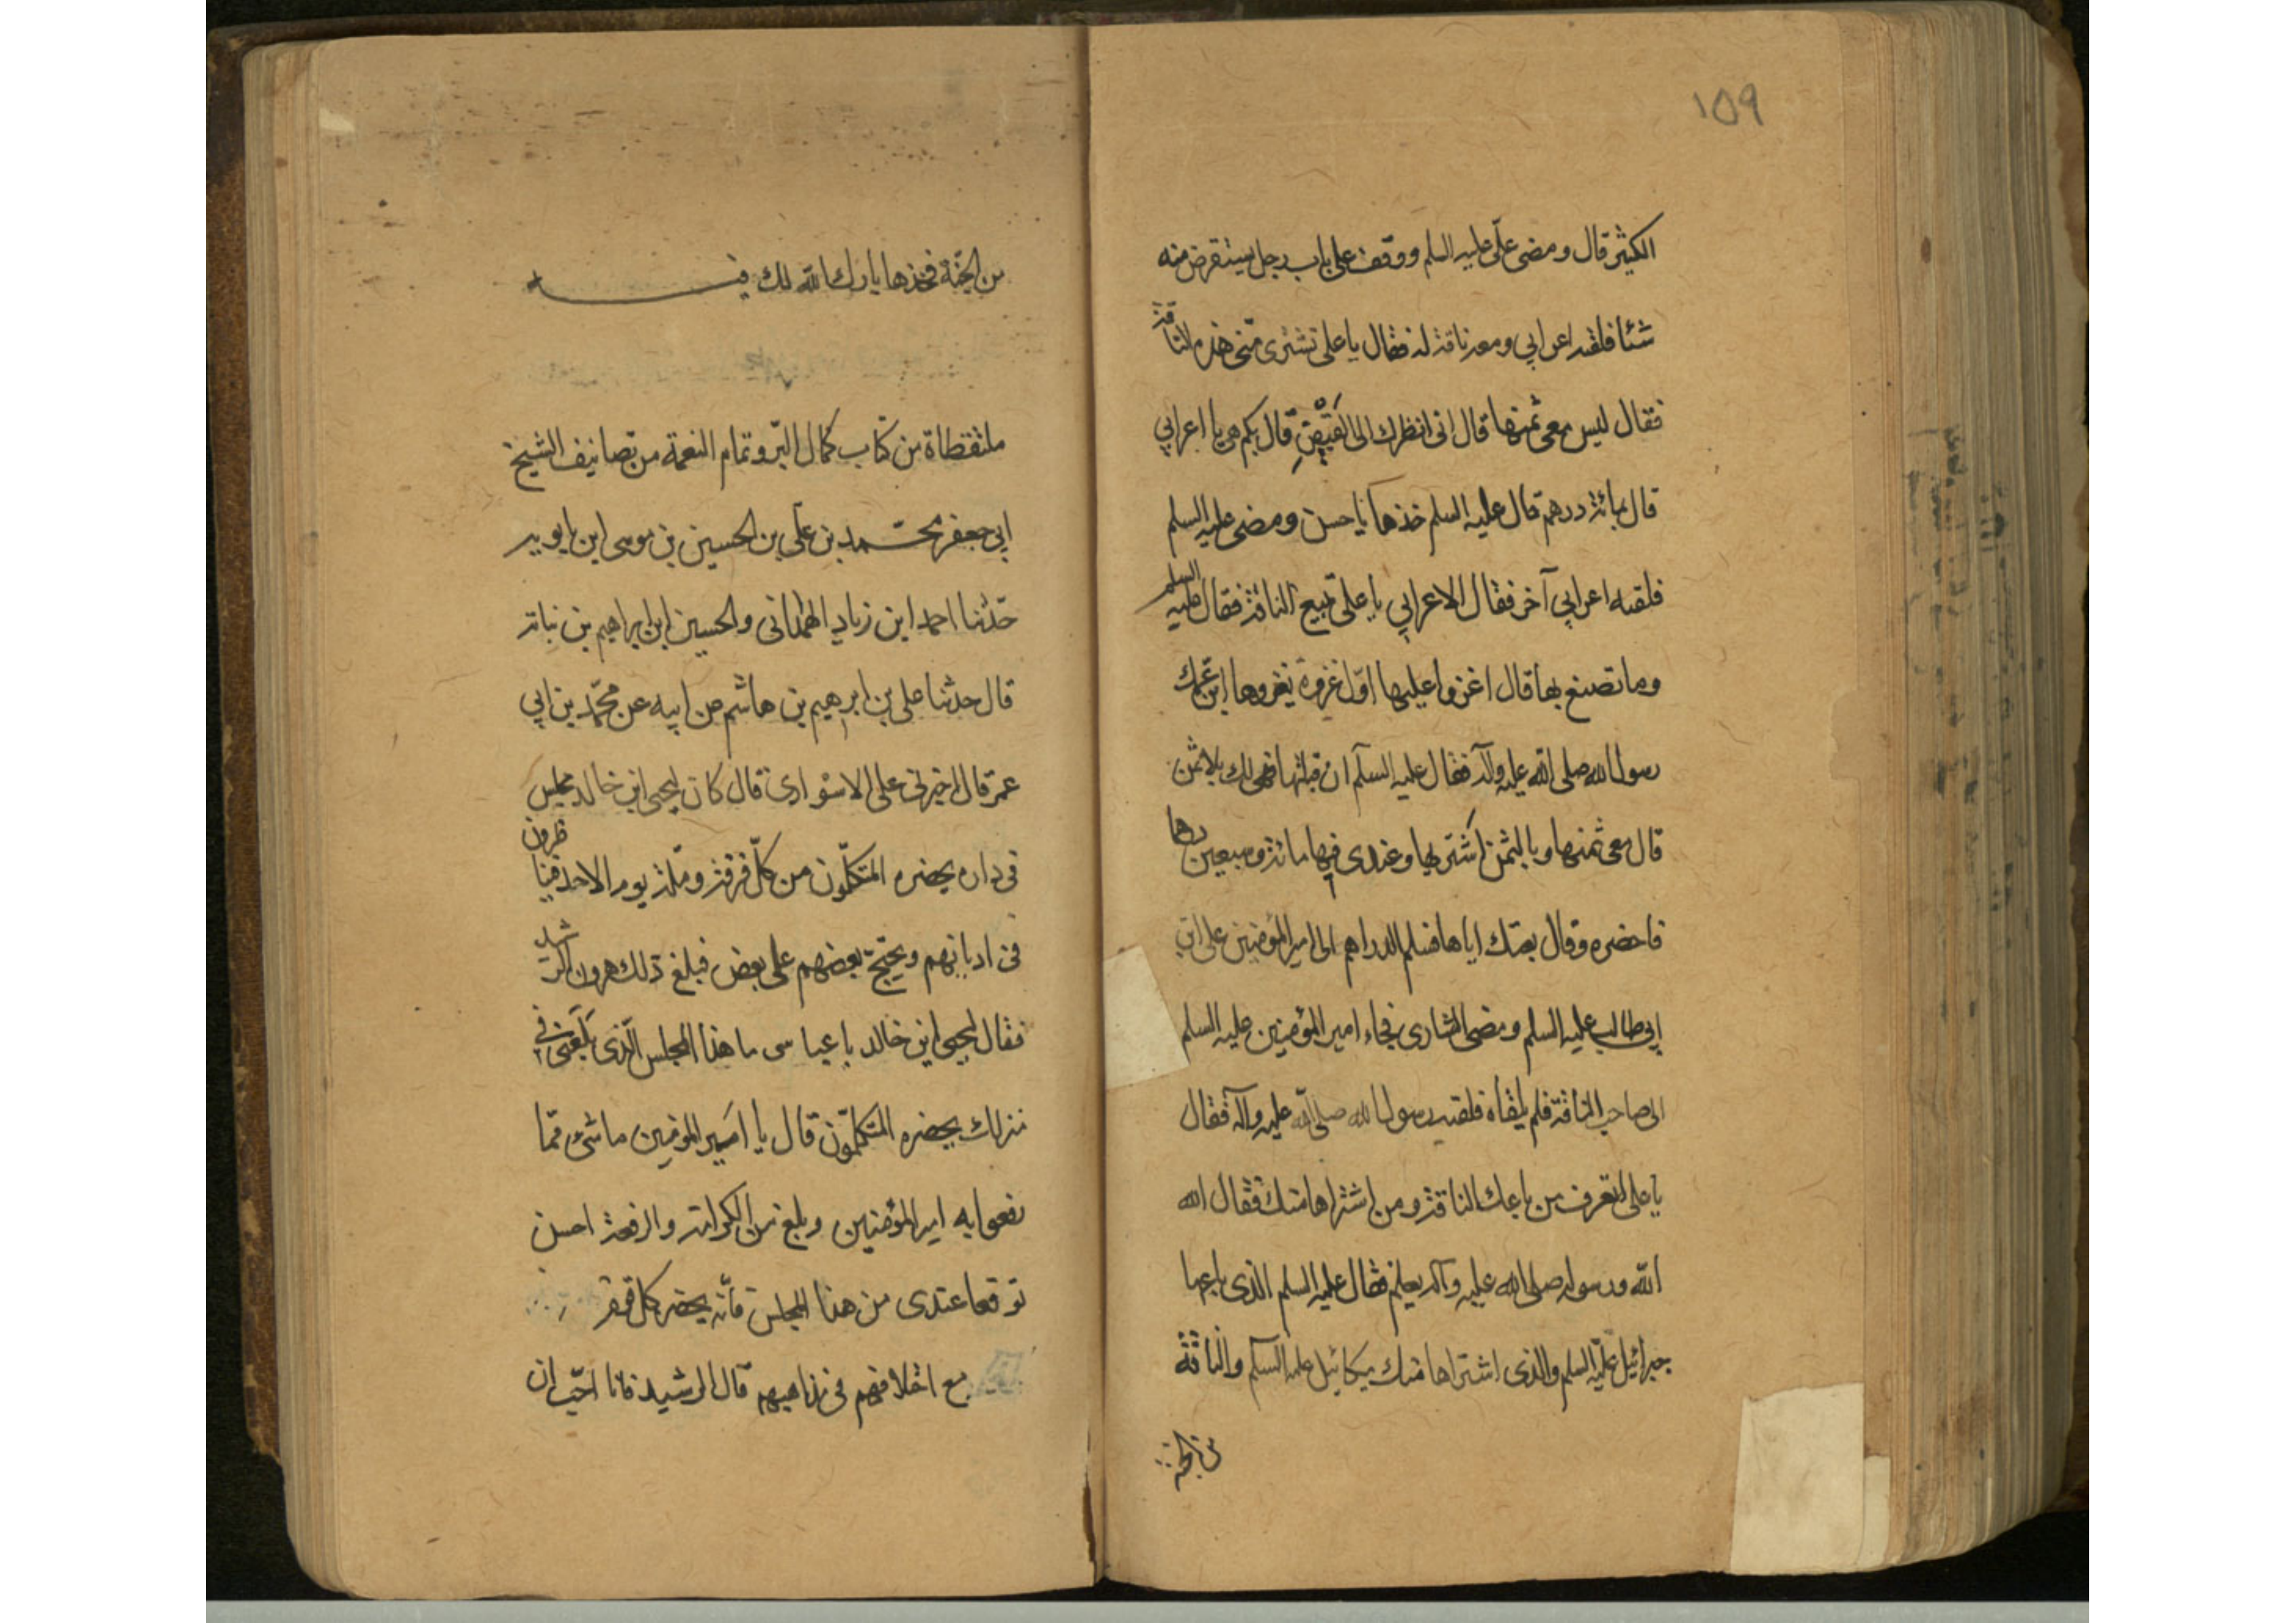 ١٥٩
الكثير قال ومضى علّى عليه السلم ووقف على باب رجل يستقرض منه
شئا فلقيه اعرابي ومعه ناقة له فقال يا على تشترى منّى هذه الناقة
فقال ليس معى ثمنها قال انى انظرك الى القيض قال بكم هى يا اعرابي
قال بمائة درهم قال عليه السلم خذها يا حسن ومضى عليه السلم
فلقيه اعرابي آخر فقال الاعرابي يا على تبيع الناقة فقال عليه السلم
وما تصنع بها قال اغزوا عليها اوّل غزوة يغزوها ابن عمّك
رسول الله صلى الله عليه وآله فقال عليه السلم ان قبلتها فهى لك بلا ثمن
قال معى ثمنها وبالثمن اشتريها وعندى فيها مائة وسبعين درهما
فاحضره وقال بعتك اياها فسلم الدراهم الى امير المؤمنين على ابن
ابي طالب عليه السلم ومضى الشارى فجاء امير المؤمنين عليه السلم
الى صاحب الناقة فلم يلقاه فلقيه رسول الله صلى الله عليه وآله فقال
يا على اتعرف من باعك الناقة ومن اشتراها منك فقال الله
الله ورسوله صلى الله عليه وآله يعلم فقال عليه السلم الذى باعها
جبرائيل عليه السلم والذى اشتراها منك ميكائيل عليه السلم والناقة
من الجنة
من الجنّة فخذها بارك الله لك فيـ
ملتقطاة من كتاب كمال البرّ وتمام النعمة من تصانيف الشيخ
ابي جعفر محمد بن علّى بن الحسين بن موسى ابن بابويه
حدّثنا احمد ابن زياد الهمدانى والحسين ابن ابراهيم بن نباتة
قال حدثنا على بن ابرهيم بن هاشم عن ابيه عن محمّد بن ابي
عمر قال اخبرنى على الاسوارى قال كان ليحيى ابن خالد مجلس
فى داره يحضره المتكلّمون من كلّ فرقة وملّة يوم الاحد فيناظرون
فى اديانهم ويحتجّ بعضهم على بعض فبلغ ذلك هرون الرشيد
فقال ليحيى ابن خالد يا عباسى ما هذا المجلس الّذى بلغنى فى
منزلك يحضره المتكلمّون قال يا امير المومنين ما شىء ممّا
رفعنى به امير المؤمنين وبلغ من الكرامة والرفعة احسن
توقعا عندى من هذا المجلس فأنه يحضر كل قوم
مع اختلافهم فى مذاهبهم قال الرشيد فانا احبّ ان